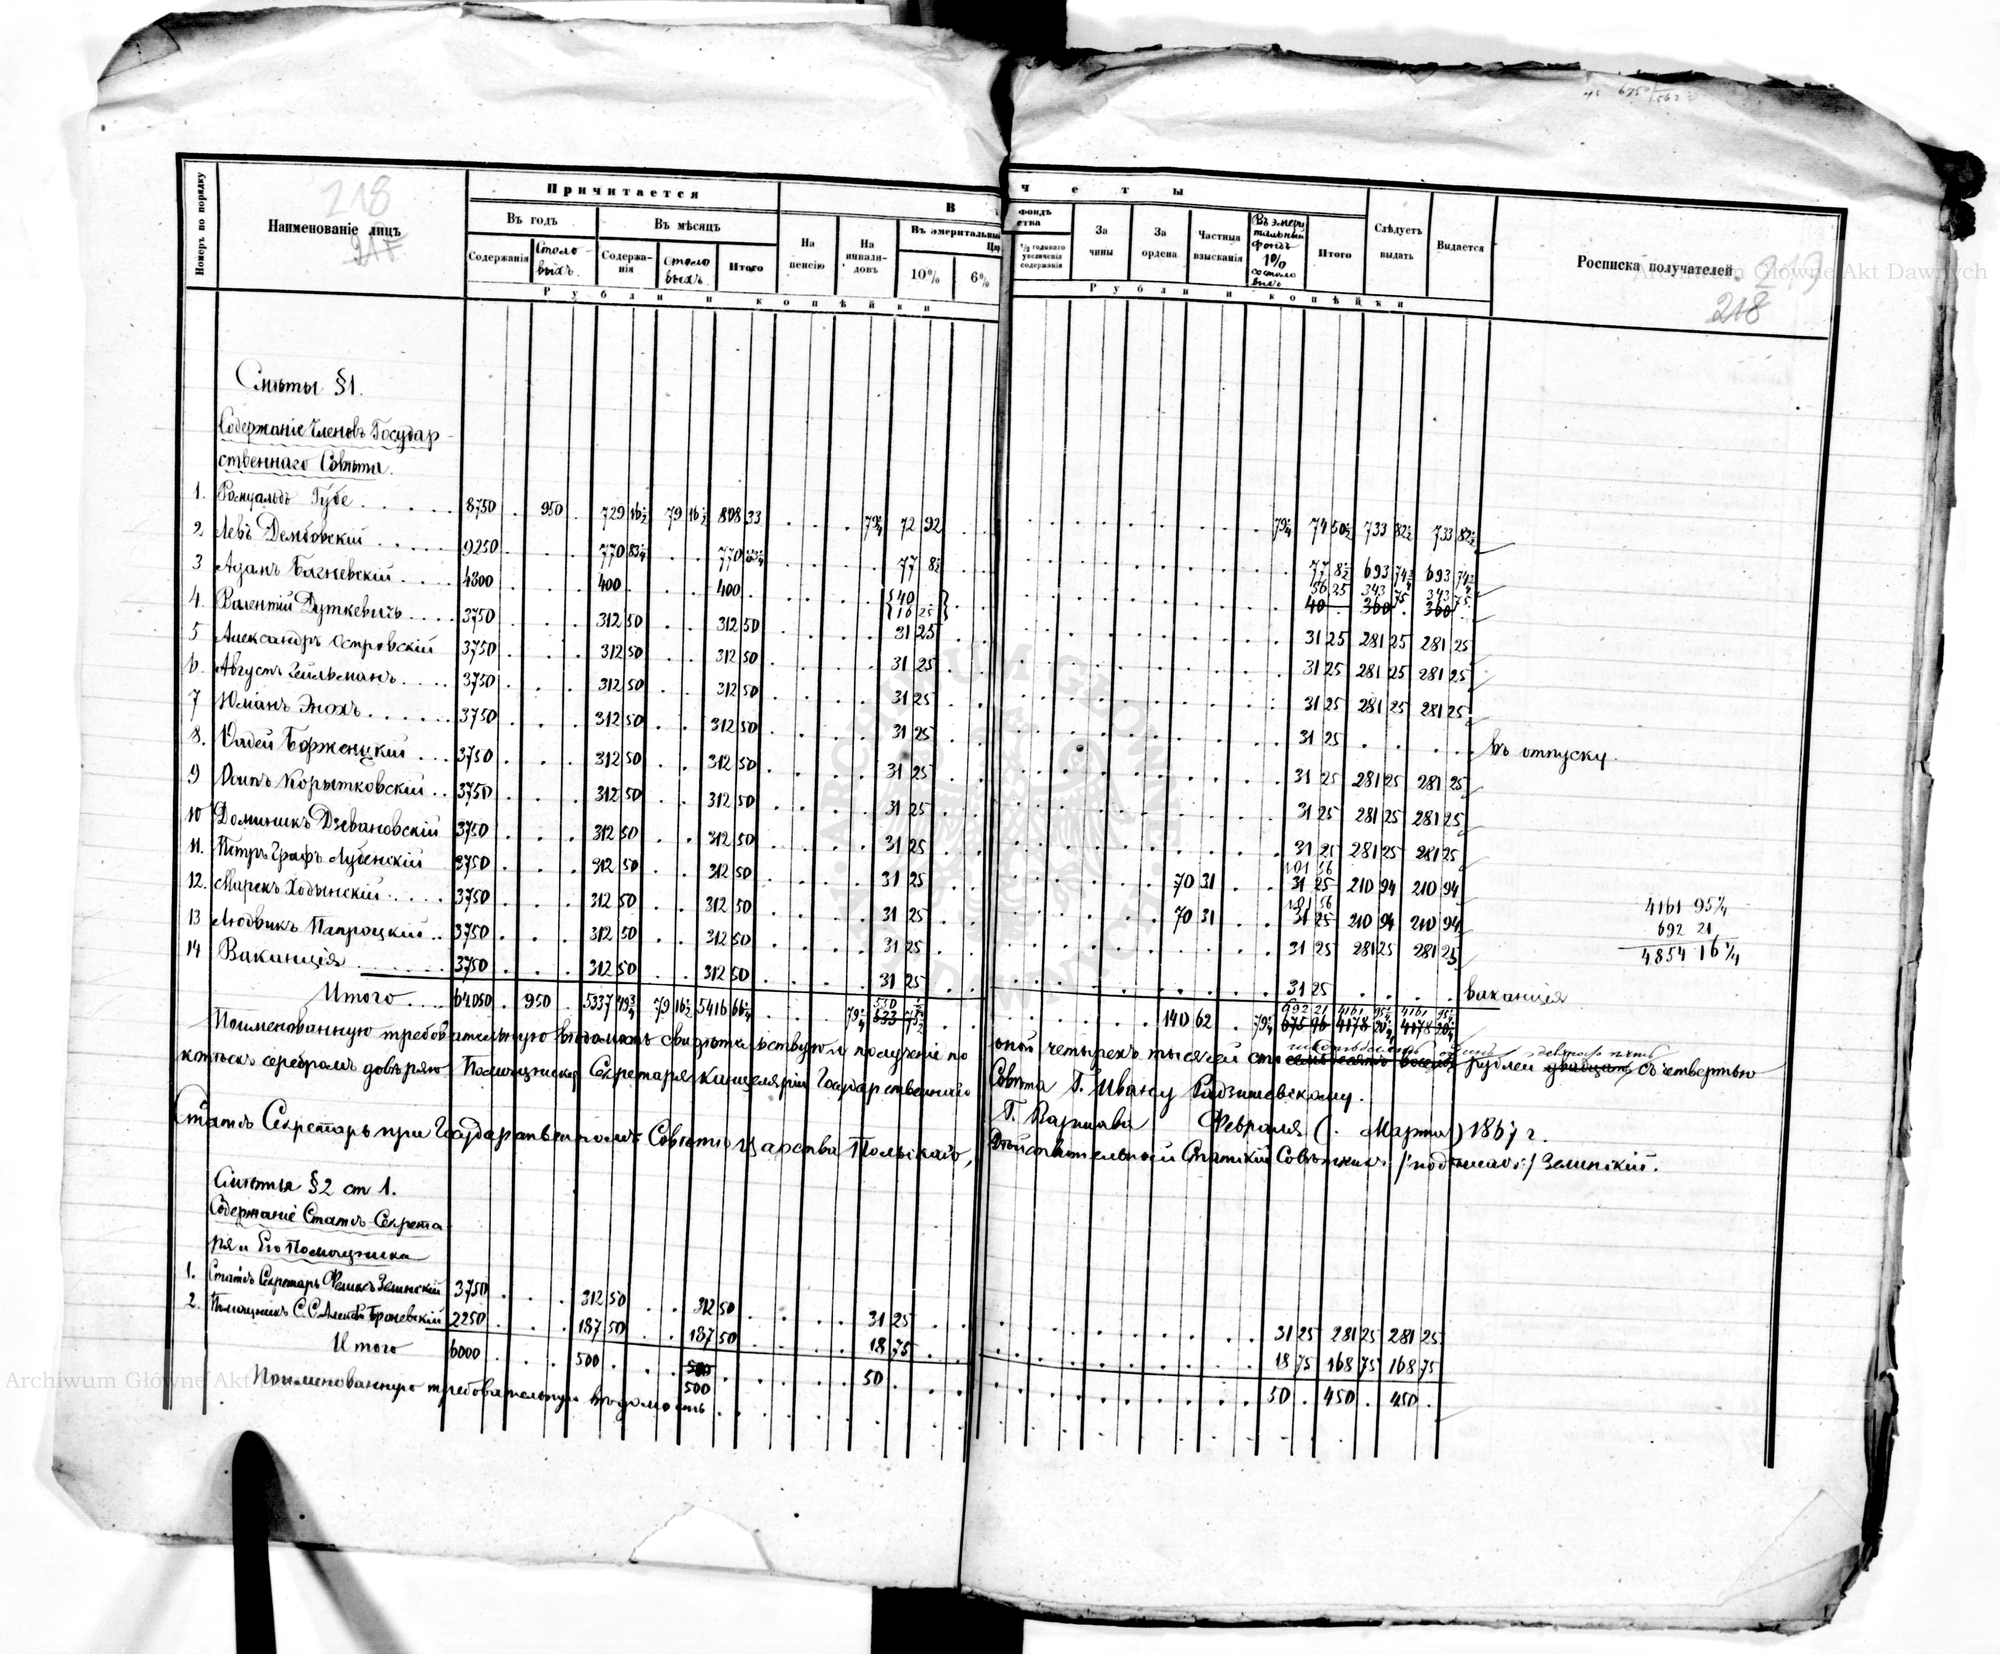 218
217
Номеръ по порядку
Наименованіе лицъ
Причитается
Въ годъ
Въ мѣсяцъ
Содержанія
Столовыхъ.
Содержанія
Столовыхъ.
Итого
В
На пенсію
На инвалидовъ
Въ эмеритальный
10%
6%
Рубли и копѣйки
четы
фондъ
1/2 годоваго увеличенія содержанія
За чины
За ордена
Частныя взысканія
Въ эмеритальный фондъ 1% со столовыхъ
Итого
Слѣдуетъ выдать
Выдается
Росписка получателей
Рубли и копѣйки
219
218
Смѣты §1.
Содержаніе Членовъ Государ-
ственнаго Совѣта.
1. Ромуальдъ Губе 8750 950 729 16½ 79 16½ 808 33 79¼ 72 92 79¼ 74 50½ 733 82½ 733 82½
2 Левъ Дембовскій 9250 770 83¼ 770 83¼ 77 8½ 77 8½ 693 74¾ 693 74¾
3 Адамъ Багневскій 4800 400 400 40 16 25 56 25 343 75 343 75 40 360 360
4. Валентій Дуткевичъ 3750 312 50 312 50 31 25 31 25 281 25 281 25
5 Александръ Островскій 3750 312 50 312 50 31 25 31 25 281 25 281 25
6. Августъ Гейльманъ 3750 312 50 312 50 31 25 31 25 281 25 281 25
7 Юліанъ Энохъ 3750 312 50 312 50 31 25 31 25 въ отпуску.
8. Фадей Борженцкій 3750 312 50 312 50 31 25 31 25 281 25 281 25
9 Осипъ Корытковскій 3750 312 50 312 50 31 25 31 25 281 25 281 25
10 Доминикъ Дзевановскій 3750 312 50 312 50 31 25 31 25 281 25 281 25
11. Петръ Графъ Лубенскій 3750 312 50 312 50 31 25 70 31 101 56 31 25 210 94 210 94
12. Маркъ Ходынскій 3750 312 50 312 50 31 25 70 31 101 56 31 25 210 94 210 94
13 Людвикъ Папроцкій 3750 312 50 312 50 31 25 31 25 281 25 281 25
14 Ваканція 3750 312 50 312 50 31 25 31 25 ваканція
4161 95¼
692 21
4854 16¼
Итого 64050 950 5337 49¾ 79 16½ 5416 66¼ 79¼ 550 633 75½ 140 62 79¼ 692 21 4161 95¼ 4161 95¼ 675 96 4178 20¼ 4178 20¼
Поименованную требовательную вѣдомость свидѣтельствуя и полученіе по оной четырехъ тысячей сто семьдесятъ восемь рублей двадцать съ четвертью
копѣекъ серебромъ довѣряю Помощнику Секретаря Канцеляріи Государственнаго Совѣта Г. Ивану Радзишевскому.
Г. Варшава Февраля (. Марта) 1867 г.
Статсъ Секретарь при Государственномъ Совѣтѣ Царства Польскаго, Дѣйствительный Статскій Совѣтникъ /подписалъ:/ Зелинскій.
Смѣты §2 ст 1.
Содержаніе Статсъ-Секрета
ря и Его Помощника
1. Статсъ Секретарь Феликсъ Зелинскій 3750 312 50 312 50 31 25 31 25 281 25 281 25
2. Помощникъ С. С. Алексѣй Броневскій 2250 187 50 187 50 18 75 18 75 168 75 168 75
Итого 6000 500 500 500 50 50 450 450
Поименованную требовательную вѣдомость
Archiwum Główne Akt Dawnych